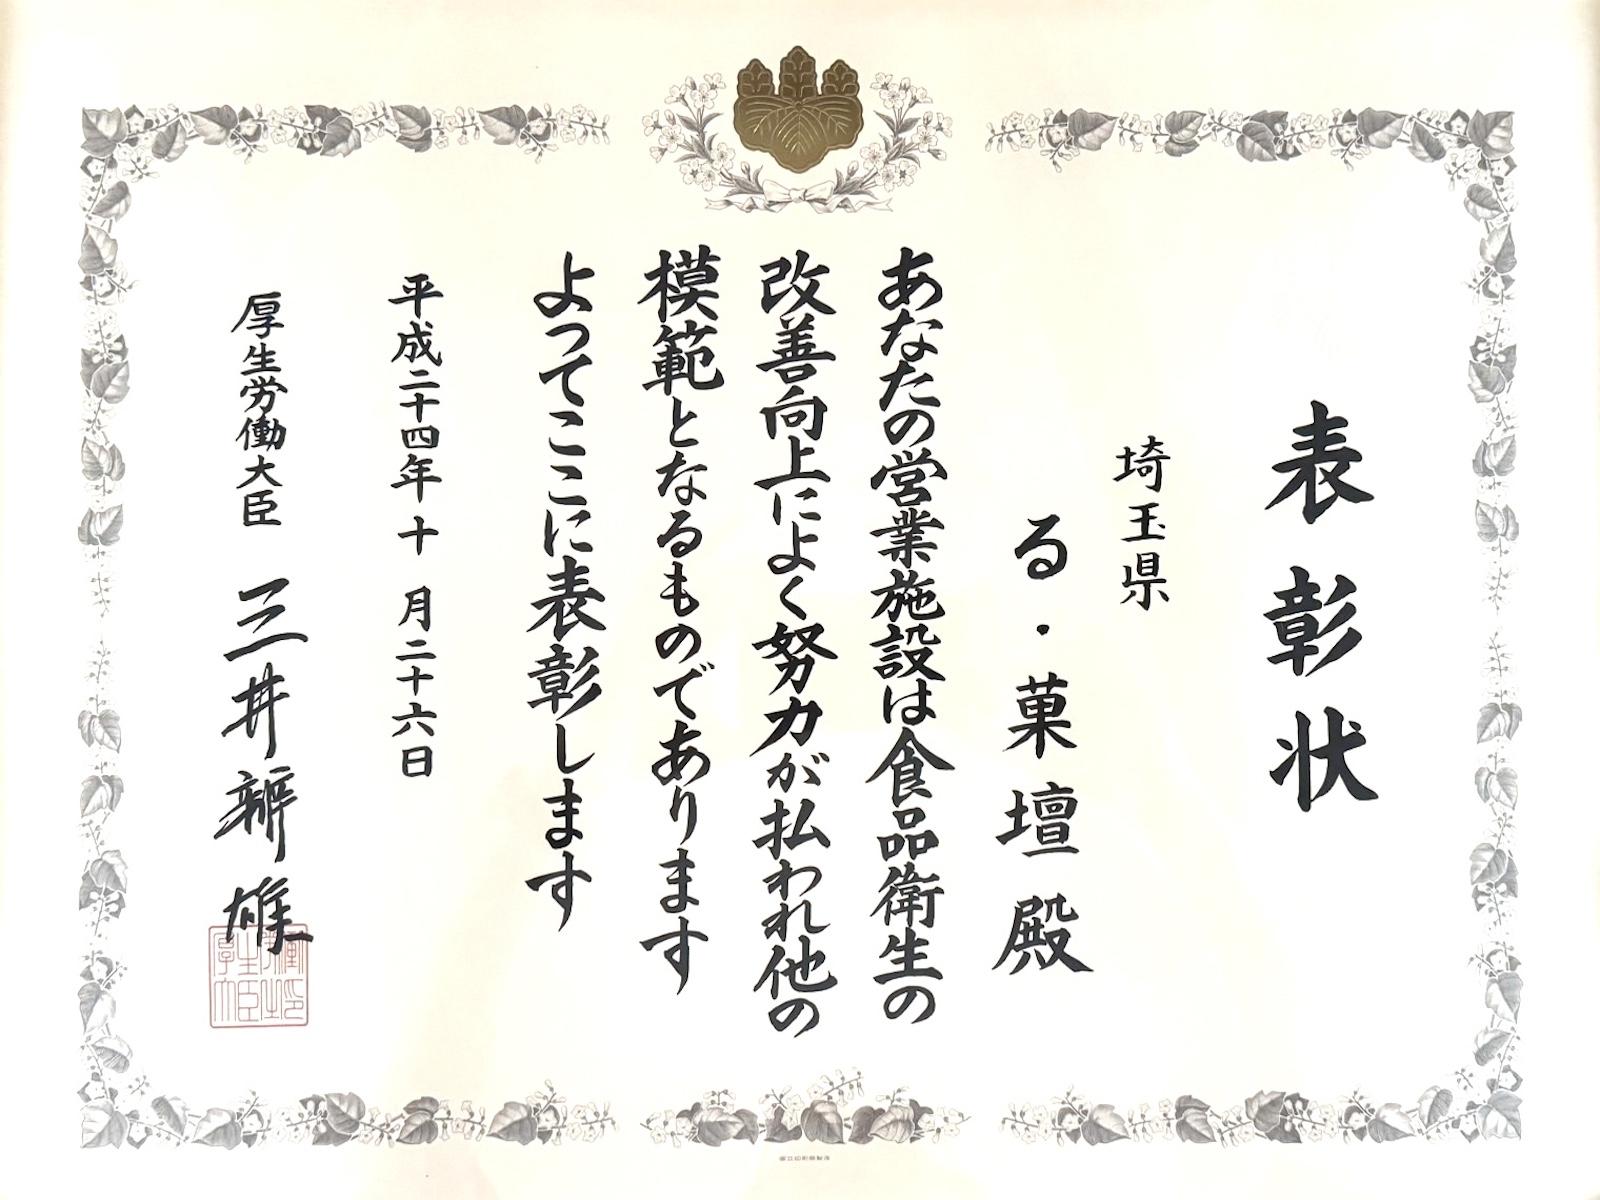 表彰状
埼玉県
る・菓壇殿
あなたの営業施設は食品衛生の
改善向上によく努力が払われ他の
模範となるものであります
よってここに表彰します
平成二十四年十月二十六日
厚生労働大臣 三井辨雄